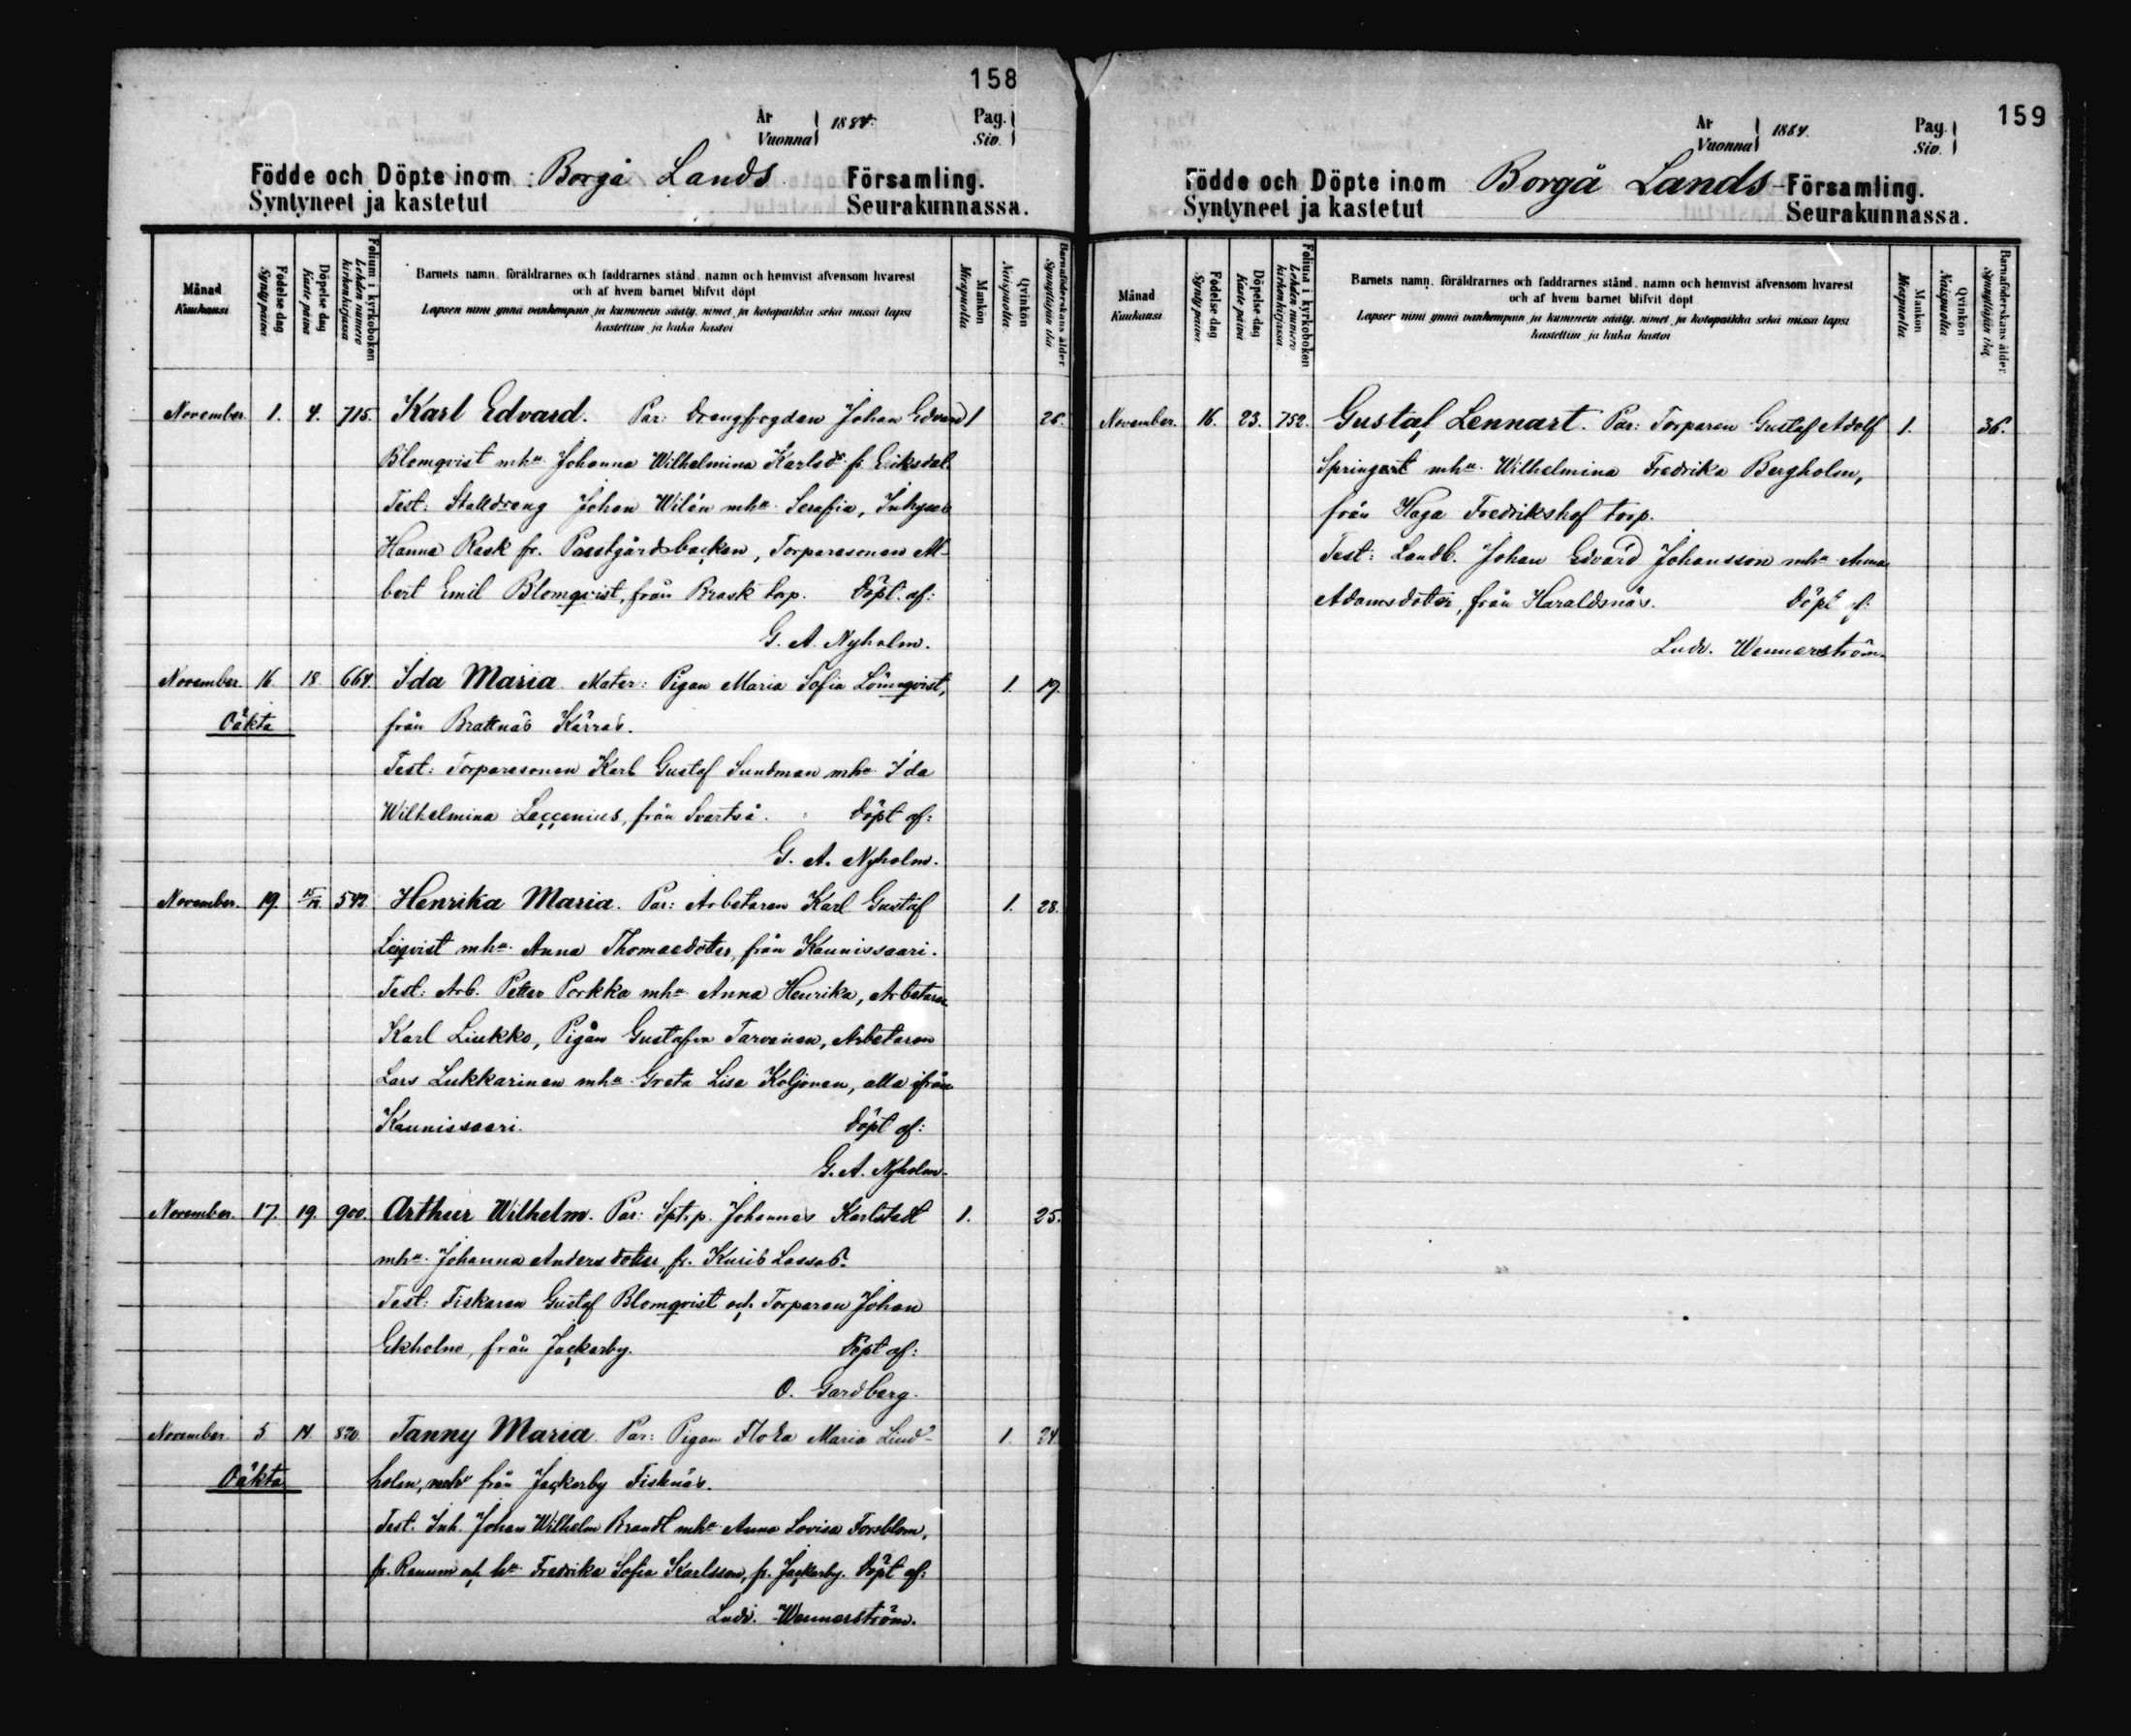 158
År
Vuonna
1884.
Pag.
Siv.
Födde och Döpte inom
Syntyneet ja kastetut
Borgå Lands
Församling.
Seurakunnassa.
Månad
Kuukausi
Födelse-dag
Synty päivä
Döpelse-dag
Kaste päivä
Folium i kyrkoboken
Lehden numero kirkonkirjassa
Barnets namn, föräldrarnes och faddrarnes stånd, namn och hemvist äfvensom hvarest
och af hvem barnet blifvit döpt
Lapsen nimi ynnä vanhempain ja kummein sääty, nimet ja kotopaikka sekä missä lapsi
kastettiin ja kuka kastoi
Mankön
Miespuolia
Qvinkön
Naispuolia
Barnaföderskans ålder
Synnyttäjän ikä
November. 1. 4. 715. Karl Edvard. Par: Drengfogden Johan Edvard 1 26.
Blomqvist mhu Johanna Wilhelmina Karlsdr fr. Eriksdal
Test: Stalldreng Johan Wilén mhu Serafia, Inhyses
Hanna Rask fr. Prestgårdsbacken, Torparesonen Al-
bert Emil Blomqvist, från Brask torp. Döpt af:
G. A. Nyholm.
November. 16. 18. 664. Ida Maria. Mater: Pigan Maria Sofia Lönnqvist, 1. 19.
Oäkta från Brattnäs Kärras.
Test: Torparesonen Karl Gustaf Sundman mhu Ida
Wilhelmina Leccenius, från Svartså. Döpt af:
G. A. Nyholm.
November. 19. 15/12 542. Henrika Maria. Par: Arbetaren Karl Gustaf 1. 28.
Leiqvist mhu Anna Thomasdotter, från Kaunissaari.
Test: Arb. Petter Porkka mhu Anna Henrika, Arbetaren
Karl Liukko, Pigan Gustafva Tarvainen, Arbetaren
Lars Lukkarinen mhu Greta Lisa Koljonen, alla ifrån
Kaunissaari. Döpt af:
G. A. Nyholm.
November. 17. 19. 900. Arthur Wilhelm. Par: Sptrp. Johannes Karlstedt 1. 25.
mhu Johanna Andersdotter, fr. Kurib Lassas.
Test: Fiskaren Gustaf Blomqvist och Torparen Johan
Ekholm, från Jackarby. Döpt af:
O. Gardberg.
November. 5 14. 820. Fanny Maria. Par: Pigan Flora Maria Lind- 1. 24.
Oäkta holm, från Jackarby Fisknäs.
Test. Inh. Johan Wilhelm Brandt mhu Anna Lovisa Forsblom,
fr. Renum och hu Fredrika Sofia Karlsson, fr. Jackarby. Döpt af:
Ludv. Wennerström.
159
År
Vuonna
1884.
Pag.
Siv.
Födde och Döpte inom
Syntyneet ja kastetut
Borgå Lands
Församling.
Seurakunnassa.
Månad
Kuukausi
Födelse-dag
Synty päivä
Döpelse-dag
Kaste päivä
Folium i kyrkoboken
Lehden numero kirkonkirjassa
Barnets namn, föräldrarnes och faddrarnes stånd, namn och hemvist äfvensom hvarest
och af hvem barnet blifvit döpt
Lapsen nimi ynnä vanhempain ja kummein sääty, nimet ja kotopaikka sekä missä lapsi
kastettiin ja kuka kastoi
Mankön
Miespuolia
Qvinkön
Naispuolia
Barnaföderskans ålder
Synnyttäjän ikä
November. 16. 23. 752. Gustaf Lennart. Par: Torparen Gustaf Adolf 1. 36.
Springert mhu Wilhelmina Fredrika Bergholm,
från Haga Fredrikshof torp.
Test: Landb. Johan Edvard Johansson mhu Anna
Adamsdotter, från Haraldsnäs. Döpt af:
Ludv. Wennerström.